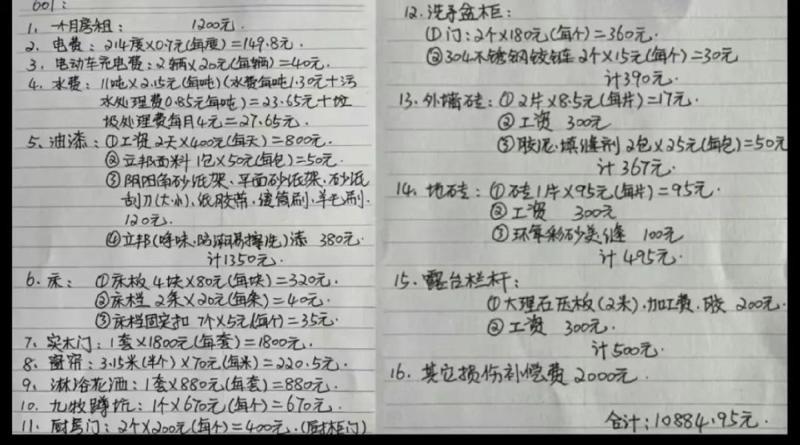 601:
1. 一个月房租: 1200元.
2. 电费: 214度×0.7元(每度)=149.8元.
3. 电动车充电费: 2辆×20元(每辆)=40元.
4. 水费: 11吨×2.15元(每吨)(水费每吨1.30元+污
水处理费0.85元每吨)=23.65元+垃
圾处理费每月4元=27.65元.
5. 油漆: ①工资2天×400元(每天)=800元.
②立邦面料 1包×50元(每包)=50元.
③阴阳角砂纸架、平面砂纸架、砂纸
刮刀(大小)、纸胶带、滚筒刷、羊毛刷.
120元.
④立邦(净味、防潮易擦洗)漆 380元.
计1350元.
6. 床: ①床板 4块×80元(每块)=320元.
②床档 2条×20元(每条)=40元.
③床档固定扣 7个×5元(每个)=35元.
7. 实木门: 1套×1800元(每套)=1800元.
8. 窗帘: 3.15米(半个)×70元(每米)=220.5元.
9. 淋浴花洒: 1套×880元(每套)=880元.
10. 九牧蹲坑: 1个×670元(每个)=670元.
11. 厨房门: 2个×200元(每个)=400元.(厨柜门)
12. 洗手盆柜:
①门: 2个×180元(每个)=360元.
②304不锈钢铰链 2个×15元(每个)=30元
计390元.
13. 外墙砖: ①2片×8.5元(每片)=17元.
②工资 300元
③胶泥、填缝剂 2包×25元(每包)=50元
计367元.
14. 地砖: ①砖1片×95元(每片)=95元.
②工资 300元
③环氧彩砂美缝 100元
计495元.
15. 露台栏杆:
①大理石压板(2米).加工费.胶 200元.
②工资 300元.
计500元.
16. 其它损伤补偿费2000元.
合计: 10884.95元.